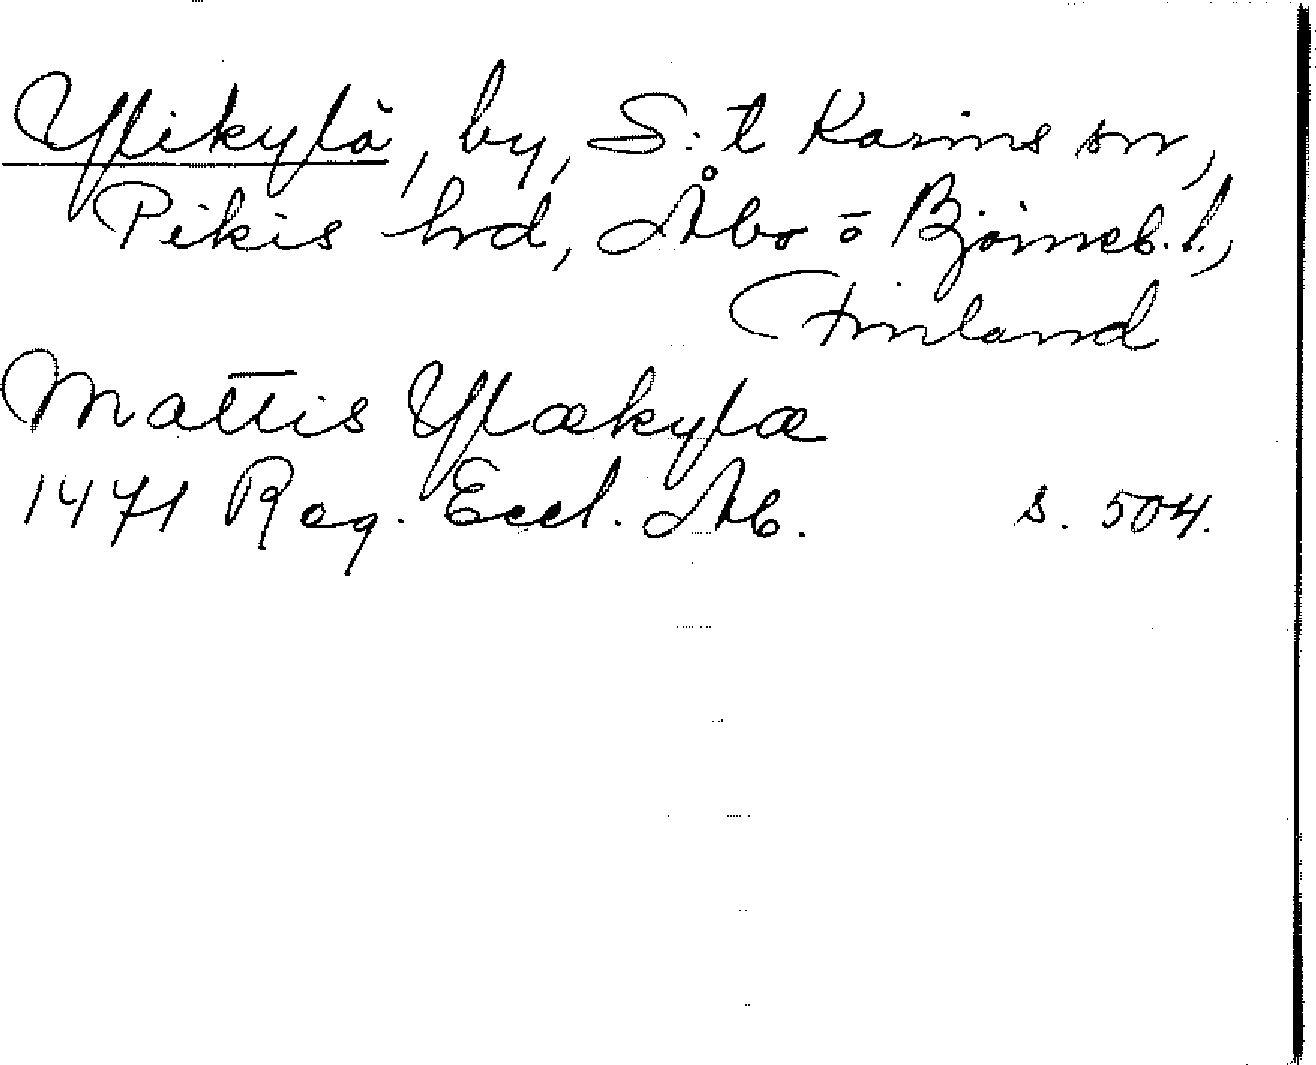 Ylikylä, by, S:t Karins sn,
Pikis hrd, Åbo o Björneb. l.,
Finland
Mattis Ylækylæ
1471 Reg. Eccl. Ab. s. 504.